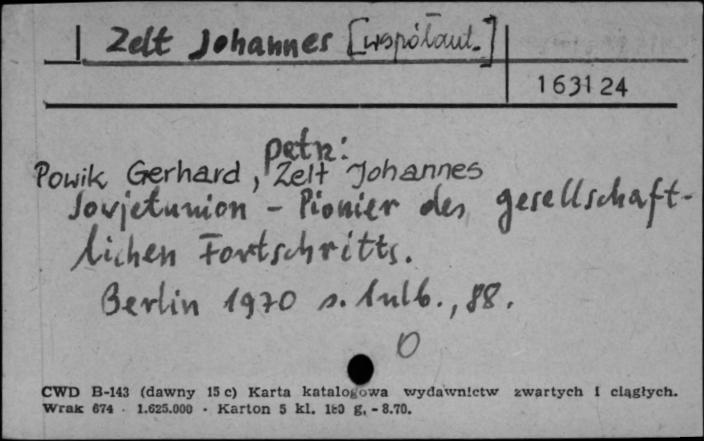 Zelt Johannes [współaut.]
163124
patrz:
Powik Gerhard, Zelt Johannes
Sovjetunion - Pionier des gesellschaft-
lichen Fortschritts.
Berlin 1970 s. 1nlb., 88.
CWD B-143 (dawny 15 c) Karta katalogowa wydawnictw zwartych i ciągłych.
Wrak 674 - 1.625.000 - Karton 5 kl. 180 g. - 8.70.